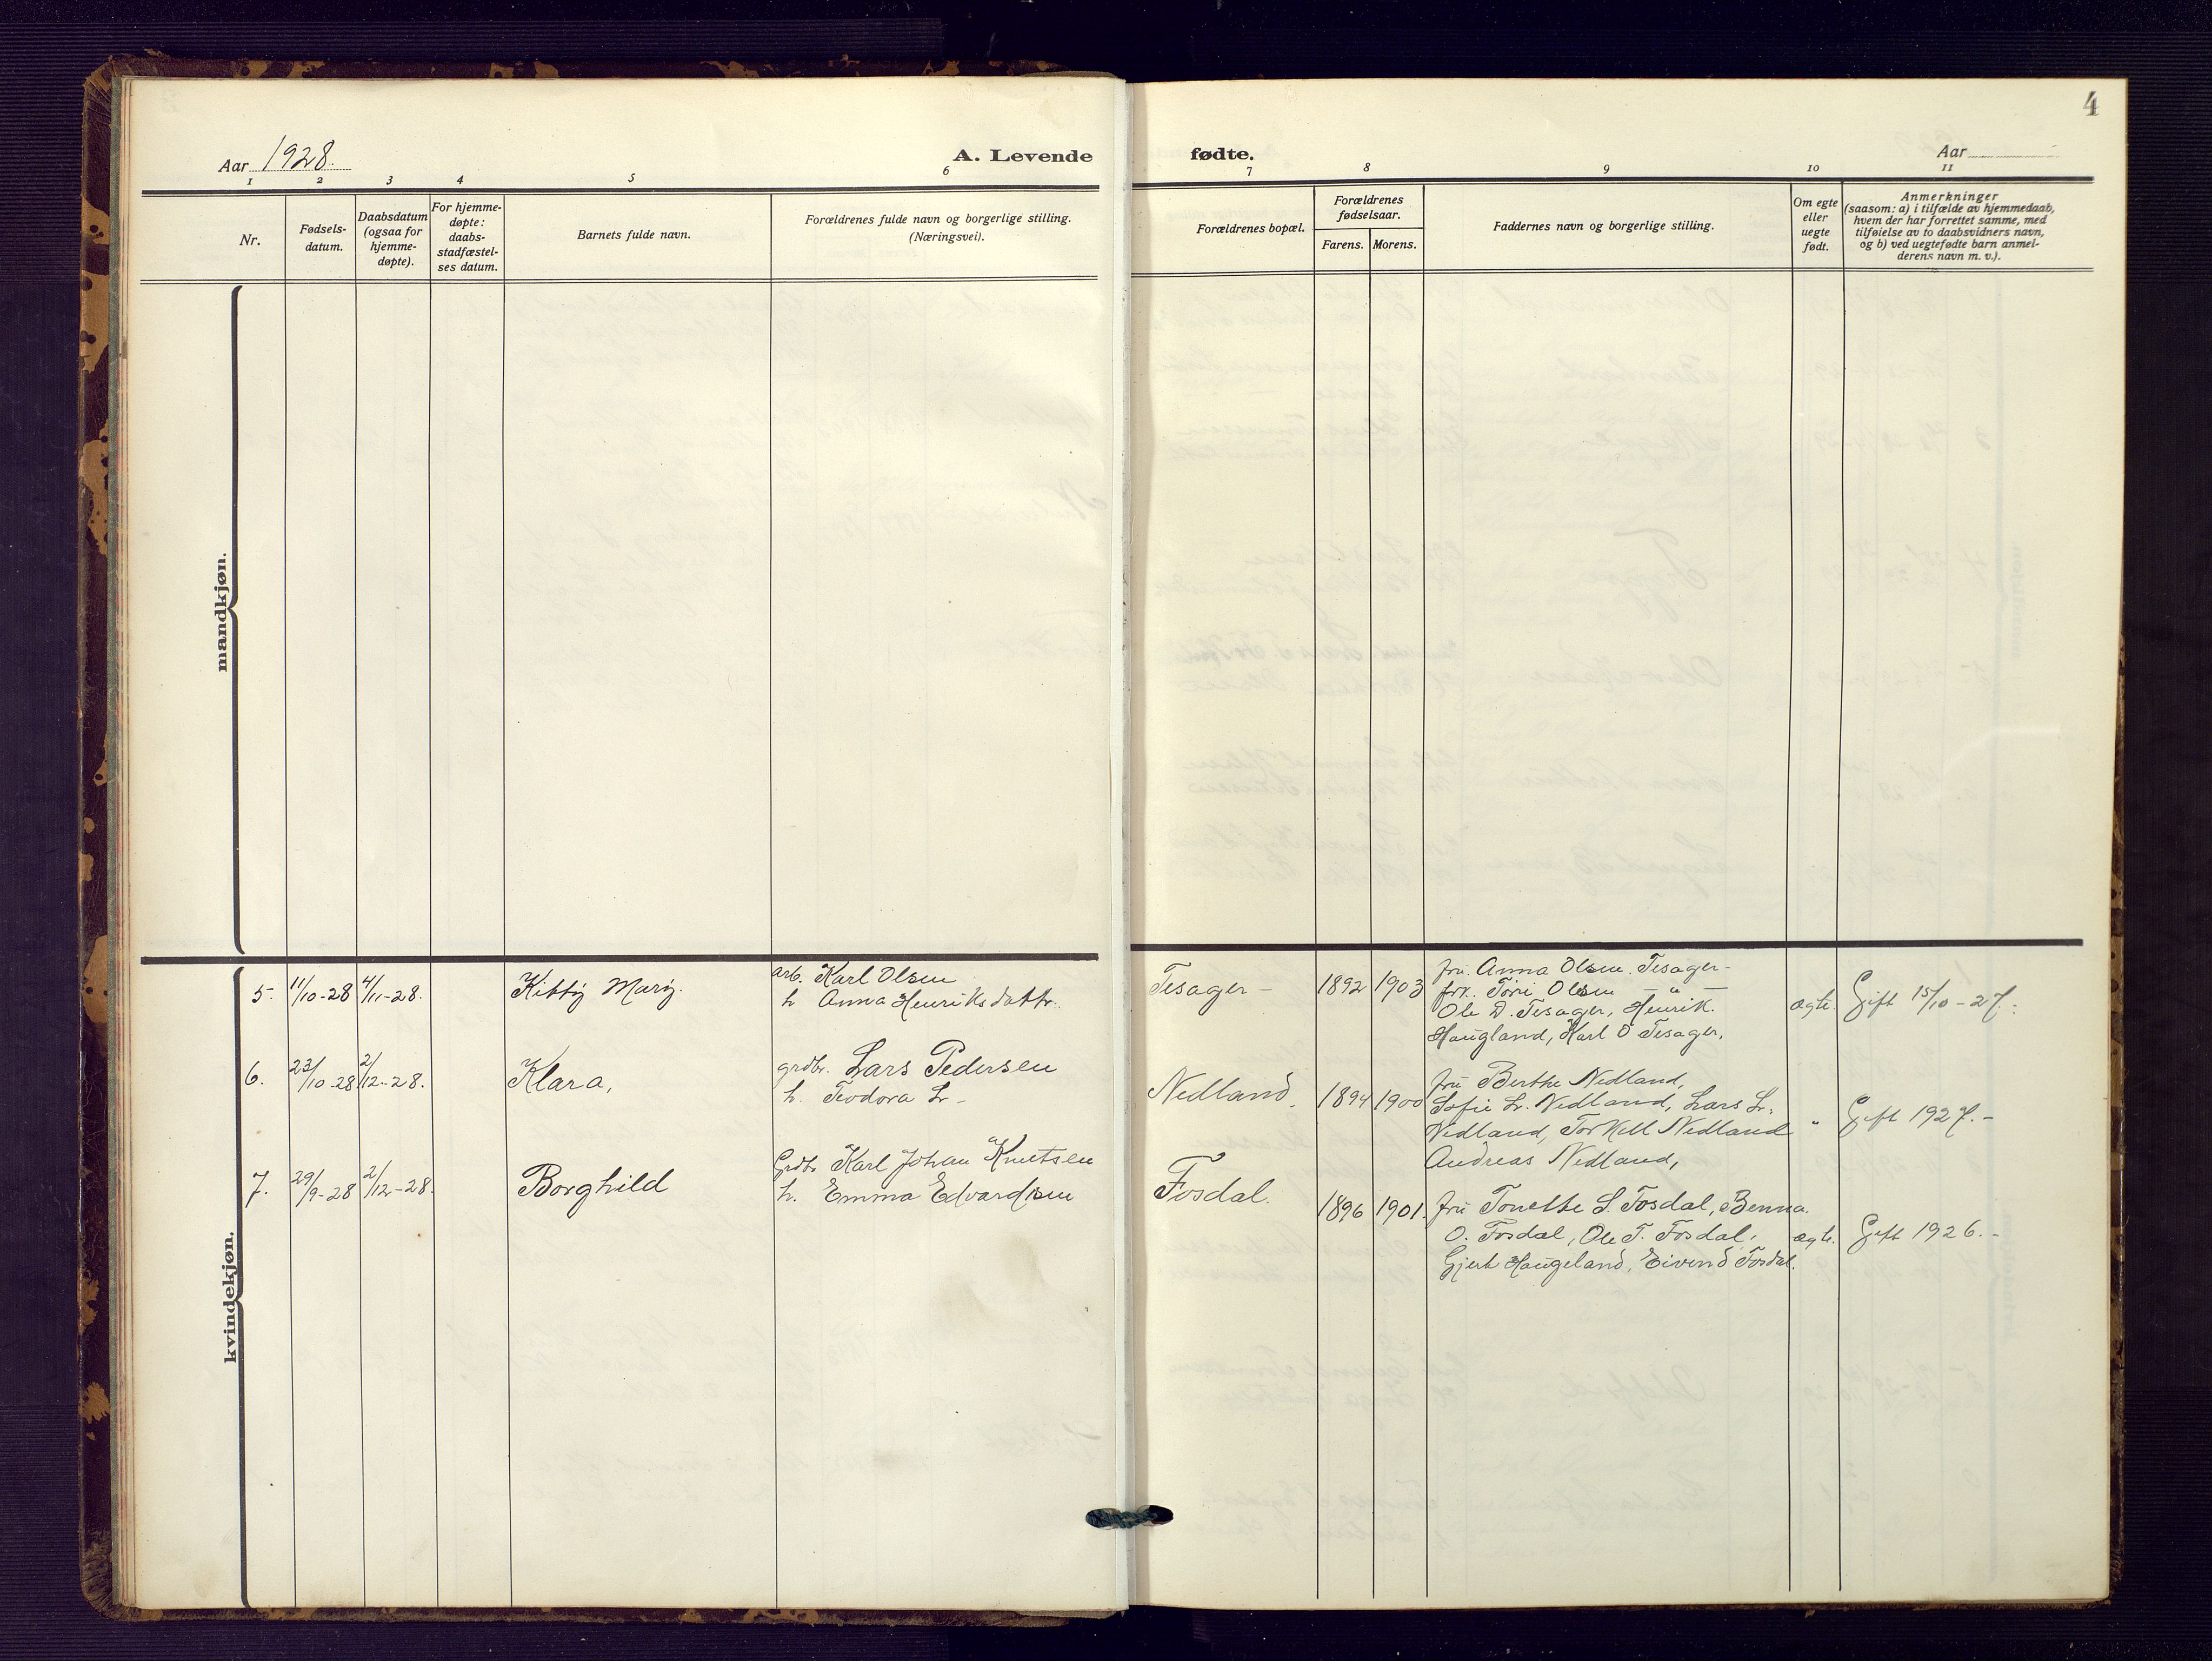 4
Aar 1928.
A. Levende
fødte.
Aar
1 2 3 4 5 6
7 8 9 10 11
Nr.
Fødsels-
datum.
Daabsdatum
(ogsaa for
hjemme-
døpte).
For hjemme-
døpte:
daabs-
stadfæstel-
ses datum.
Barnets fulde navn.
Forældrenes fulde navn og borgerlige stilling.
(Næringsvei).
Forældrenes bopæl.
Forældrenes
fødselsaar.
Farens. Morens.
Faddernes navn og borgerlige stilling.
Om egte
eller
uegte
født.
Anmerkninger
(saasom: a) i tilfælde av hjemmedaab,
hvem der har forrettet samme, med
tilføielse av to daabsvidners navn,
og b) ved uegtefødte barn anmel-
derens navn m. v.).
mandkjøn.
kvindekjøn.
5. 11/10-28 4/11-28. Kitty Mary.
arb. Karl Olsen
h Anna Henriksdattr.
Tesager - 1892 1903
fru. Anna Olsen. Tesager-
frk. Tori Olsen - " -
Ole D. Tesager, Henrik.
Haugland, Karl O Tesager.
ægte. Gift 15/10-27.
6. 23/10-28 2/12-28. Klara,
grdbr. Lars Pedersen
h. Teodora L -
Nedland. 1894 1900
fru Berthe Nedland,
Sofie L. Nedland, Lars L.
Nedland, Torkell Nedland
Andreas Nedland,
" Gift 1927.-
7. 29/9-28 2/12-28. Borghild
Grdbr Karl Johan Knutsen
h. Emma Edvardsen
Fosdal. 1896 1901.
fru Tonette S. Fosdal, Benna.
O. Fosdal, Ole T. Fosdal,
Gjert Haugeland, Eivind Fosdal.
ægte. Gift 1926.-